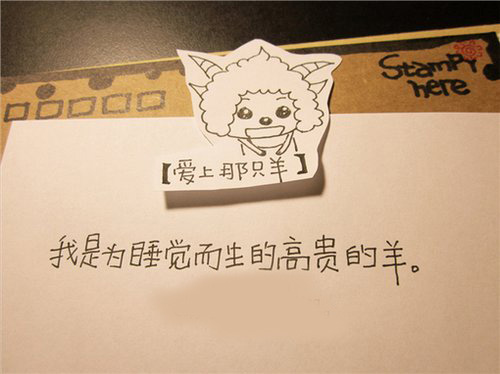 Stamp
here
【爱上那只羊】
我是为睡觉而生的高贵的羊。